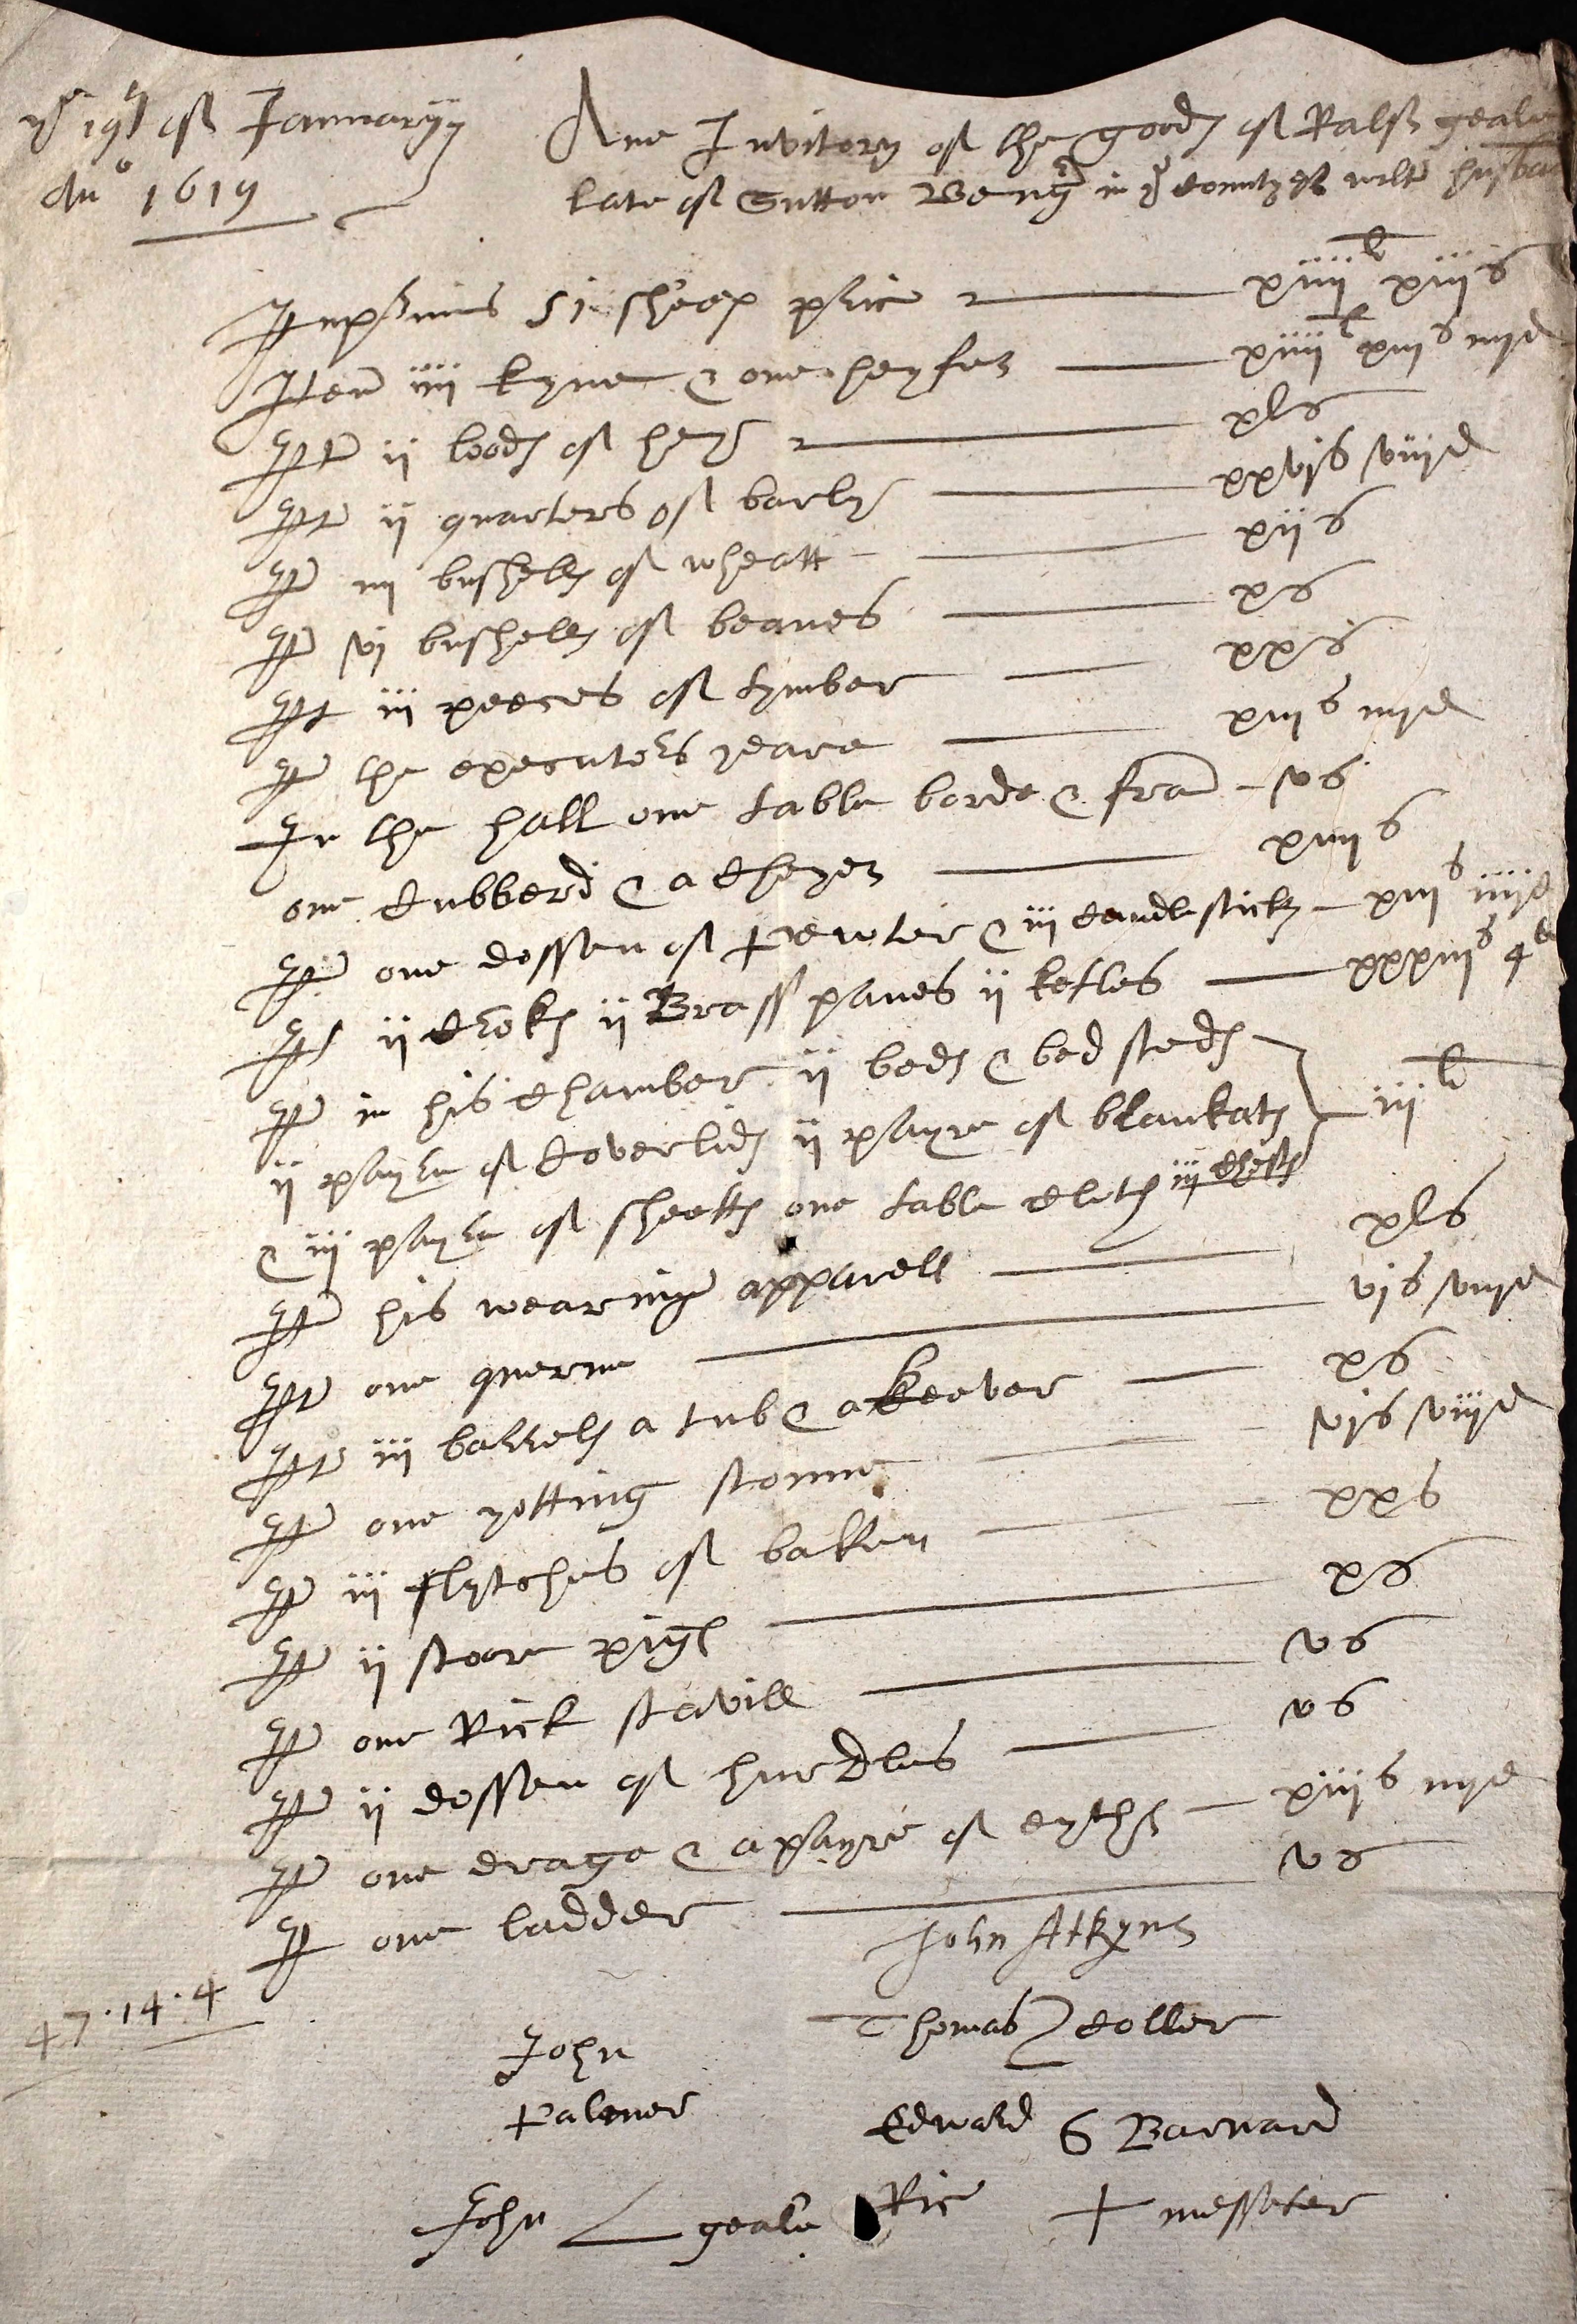 ye 19th of Januaryy
Ano 1619
Ane Invitory of the goods of Ralf geale
late of Sutton Beng' in ye Countye of wilts husba
Inprimis 51 sheep price xiiijli xiijs
Item iiij kyne & one heyfer xiijli xiijs iiijd
It ij loods of hey xls
It ij quarters of barly xxvjs viijd
It iij bushells of wheatt xijs
It vj bushells of beanes xs
It iij peeces of tymber xxs
It the executors yeare xiijs iiijd
In the hall one table borde & fram vs
one Cubberd & a Cheyer xiiijs
It one dossen of pewter & iij Candlesticks xiijs iiijd
It ij Croks ij Brass panes ij ketles xxxiijs 4d
It in his Chamber ij beds & bed steds
ij payre of Coverlids ij payre of blankats iijli
& iij payre of sheetts one table Cloth iij Chests
It his wearing apparell xls
It one querne vjs viijd
It iij barrels a tub & a keever xs
It one yotting stonne vjs viijd
It iij flytches of baken xxs
It ij stoore pigs xs
It one Rick stavill vs
It ij dossen of hurdles vs
It one drage & a payre of eythes xiijs iiijd
It one ladder vs
47 . 14 . 4
John Atkyns
Thomas Coller
John
Palmer
Edward 6 Barnard
John geale Ric + messeter